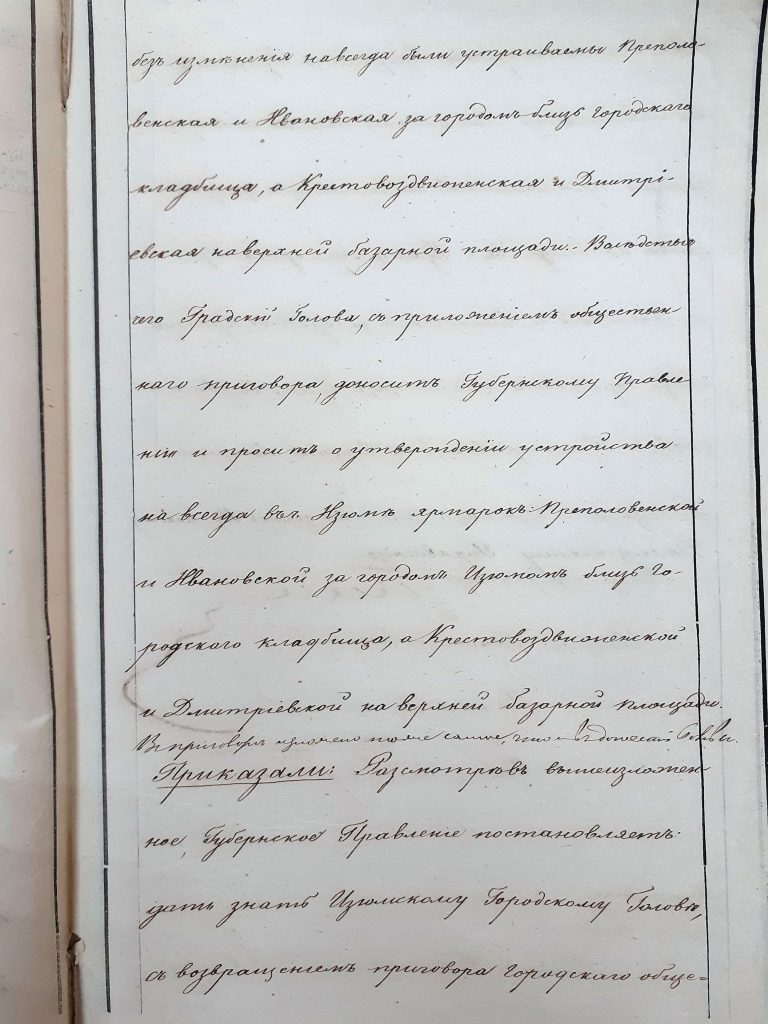 безъ измѣненія навсегда были устраиваемы Преполо-
венская и Ивановская за городомъ близь городскаго
кладбища, а Крестовоздвиженская и Дмитрі-
евская на верхней базарной площади. - Вслѣдствіе
чего Градскій Голова, съ приложеніемъ обществен-
наго приговора, доноситъ Губернскому Правле-
нію и проситъ о утвержденіи устройства
на всегда въ г. Изюмѣ ярмарокъ: Преполовенской
и Ивановской за городомъ Изюмомъ близь го-
родскаго кладбища, а Крестовоздвиженской
и Дмитріевской на верхней базарной площади.
Въ приговорѣ изложено тоже самое, что и въ донесеніи
Приказали: Разсмотрѣвъ вышеизложен-
ное, Губернское Правленіе постановляетъ:
дать знать Изюмскому Городскому Головѣ,
съ возвращеніемъ приговора городскаго обще-